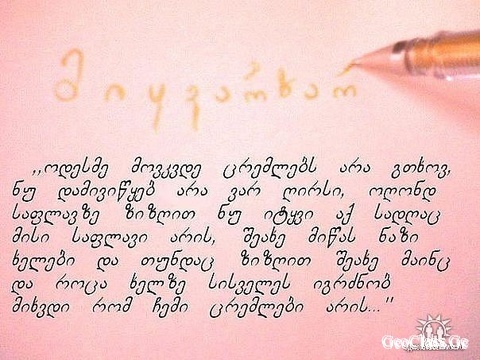 მიყვარხარ
,,ოდესმე მოვკვდე ცრემლებს არა გთხოვ,
ნუ დამივიწყებ არა ვარ ღირსი, ოღონდ
საფლავზე ზიზღით ნუ იტყვი აქ სადღაც
მისი საფლავი არის, შეახე მიწას ნაზი
ხელები და თუნდაც ზიზღით შეახე მაინც
და როცა ხელზე სისველეს იგრძნობ
მიხვდი რომ ჩემი ცრემლები არის..."
GeoClass.Ge